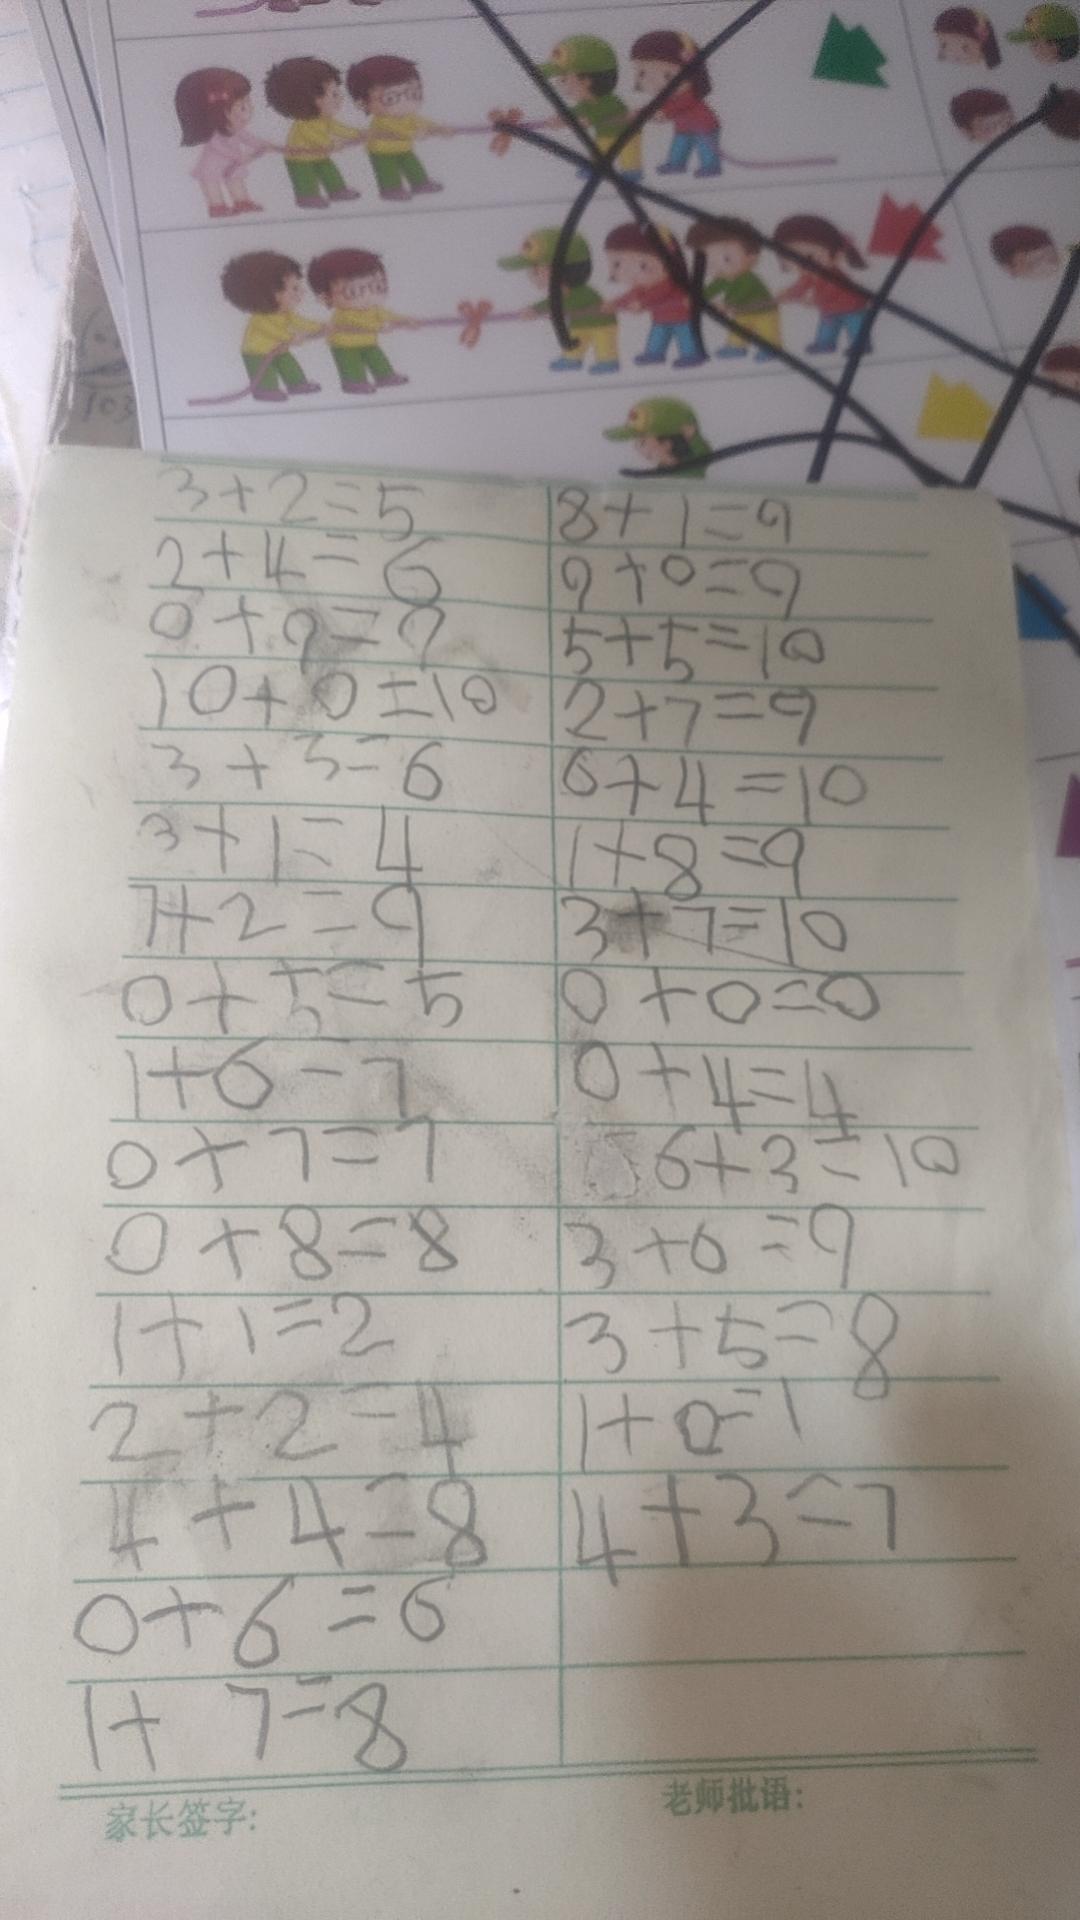 3+2=5
2+4=6
0+9=9
10+0=10
3+3=6
3+1=4
7+2=9
0+5=5
1+6=7
0+7=7
0+8=8
1+1=2
2+2=4
4+4=8
0+6=6
1+7=8
8+1=9
9+0=9
5+5=10
2+7=9
6+4=10
1+8=9
3+7=10
0+0=0
0+4=4
6+3=10
3+6=9
3+5=8
1+0=1
4+3=7
家长签字:
老师批语:
103